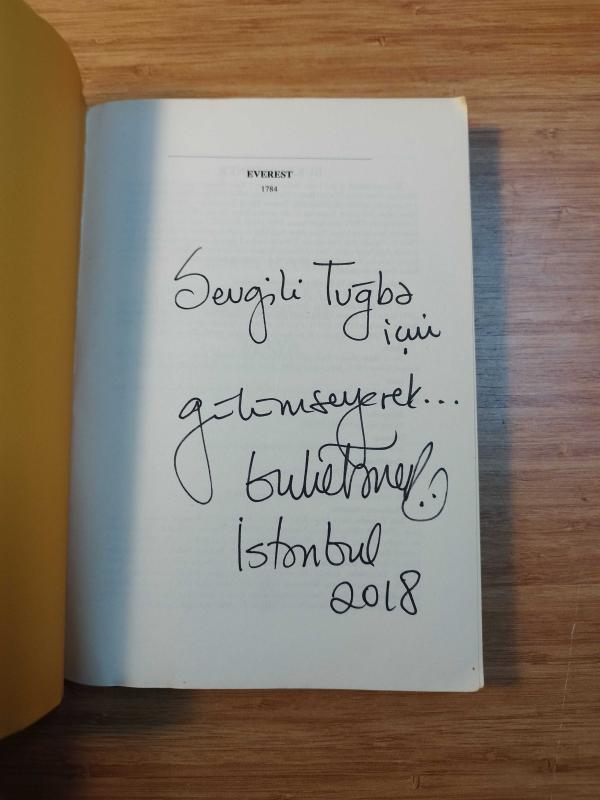 EVEREST
1784
Sevgili Tuğba
için
gülümseyerek...
İstanbul
2018